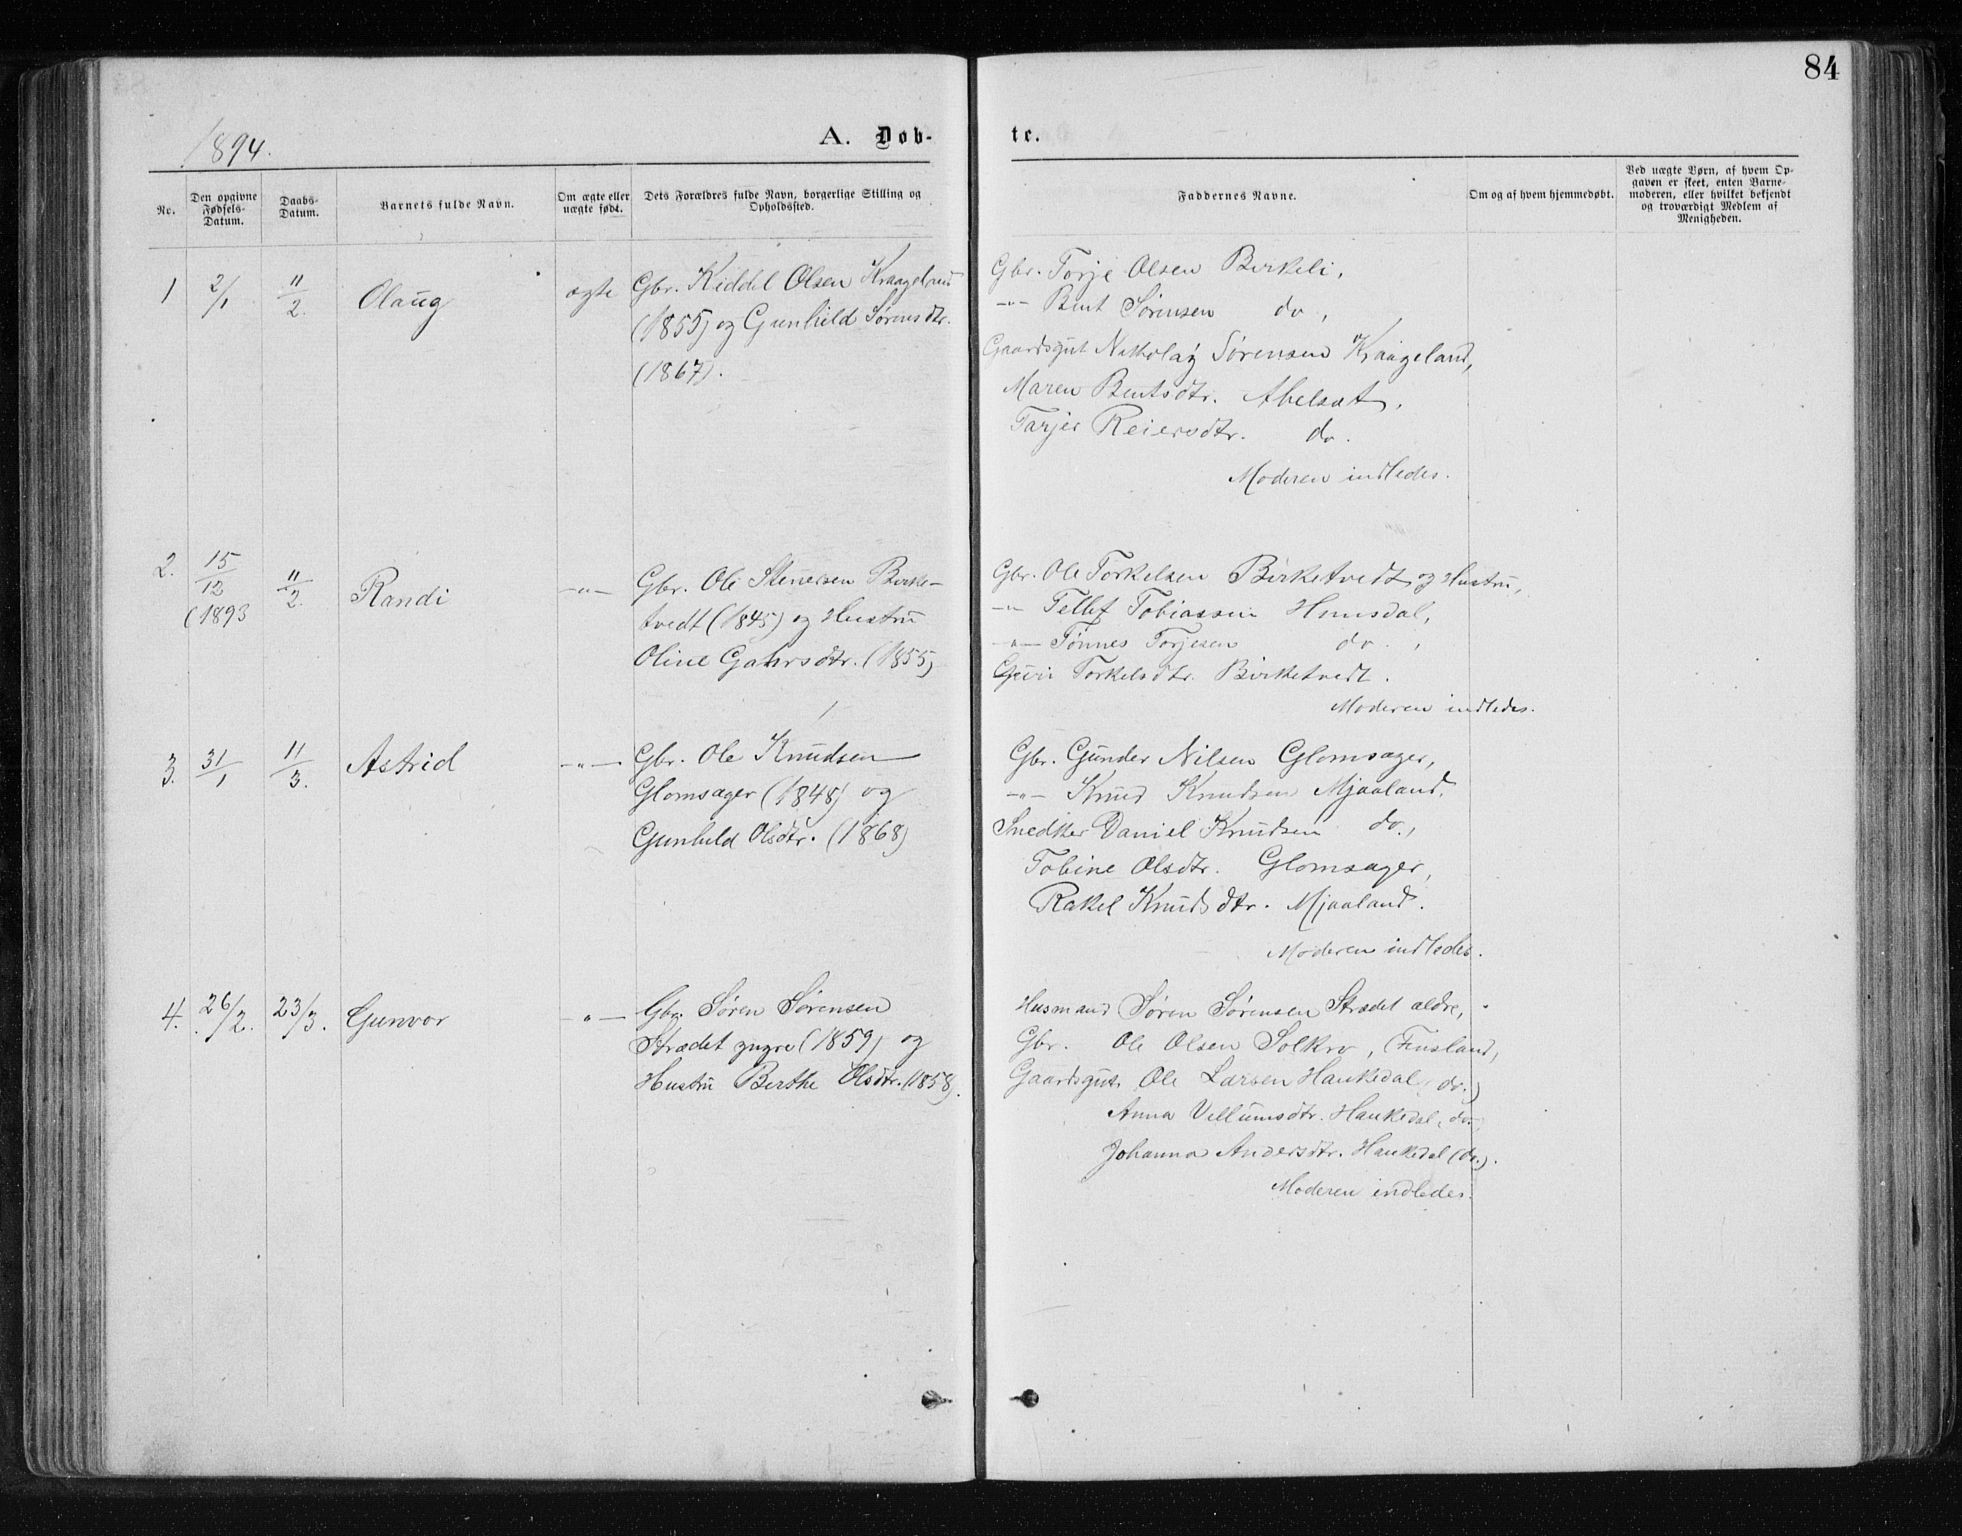 84
1894.
A. Døb-
te.
No.
Den opgivne Fødsels-Datum.
Daabs-Datum.
Barnets fulde Navn.
Om ægte eller uægte født.
Dets Forældres fulde Navn, borgerlige Stilling og Opholdssted.
Faddernes Navne.
Om og af hvem hjemmedøbt.
Ved uægte Børn, af hvem Opgaven er skeet, enten Barnemoderen, eller hvilket bekjendt og troværdigt Medlem af Menigheden.
1 2/1 11/2. Olaug ægte Gbr. Kiddel Olsen
(1855) og Gunhild Sørensdtr.
(1867).
Gbr. Torje Olsen Birkeli,
-"- Bent Sørensen do.,
Gaardsgut Nikolay Sørensen Kraageland,
Maren Bentsdtr. Abelsæt,
Tarjer Reiersdtr. do.
Moderen indledes.
2. 15/12 (1893 11/2. Randi -"- Gbr. Ole Stenersen Birke-
tvedt (1845) og Hustru
Oline Gahrsdtr. (1855)
Gbr. Ole Torkelsen Birketvedt og Hustru,
-"- Tellef Tobiassen Homsdal,
-"- Tønnes Torjesen do.,
Guri Torkelsdtr. Birketvedt.
Moderen indledes.
3. 31/1 11/3. Astrid -"- Gbr. Ole Knudsen
Glomsager (1848) og
Gunhild Olsdtr. (1868)
Gbr. Gunder Nilsen Glomsager,
-"- Knud Knudsen Mjaaland,
Snedker Daniel Knudsen do.,
Tobine Olsdtr. Glomsager,
Rakel Knudsdtr. Mjaaland.
Moderen indledes.
4. 26/2. 23/3. Gunvor -"- Gbr. Søren Sørensen
Strædet yngre (1859) og
Hustru Berthe Olsdtr. (1858).
Husmand Søren Sørensen Strædet ældre,
Gbr. Ole Olsen Solkro, (Finsland,
Gaardsgut Ole Larsen Haukedal (do.)
Anna Villumsdtr. Haukedal, do.
Johanna Andersdtr. Haukedal (do.).
Moderen indledes.